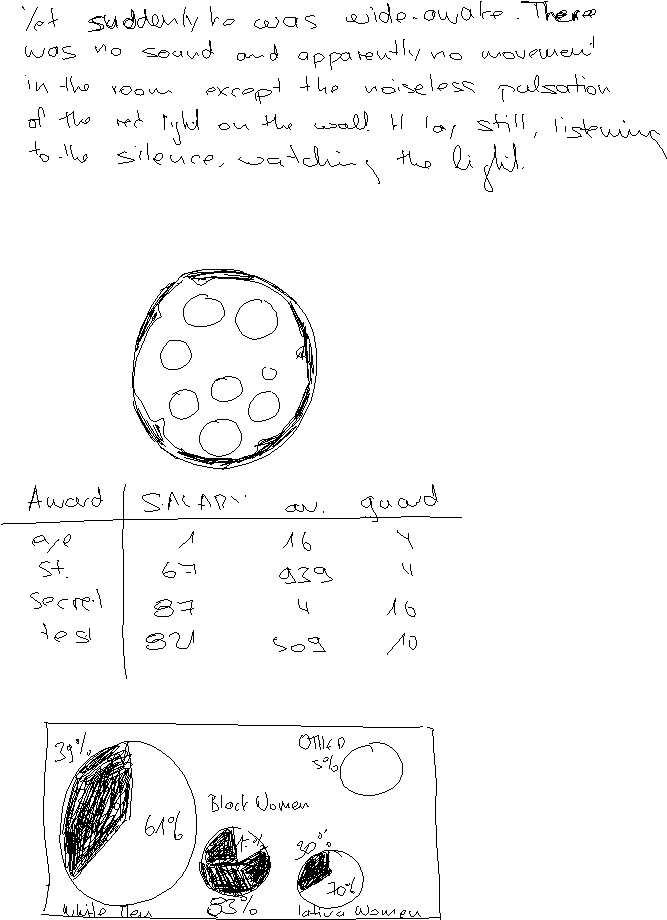 Yet suddenly he was wide-awake. There
was no sound and apparently no movement
in the room except the noiseless pulsation
of the red light on the wall. H lay still, listening
to the silence, watching the light.
Award SALARY av. guard
eye 1 16 4
St. 67 939 4
Secret 87 4 16
test 821 509 10
39%
61%
White Men
Black Women
83%
Other
5%
30%
70%
Latina Women